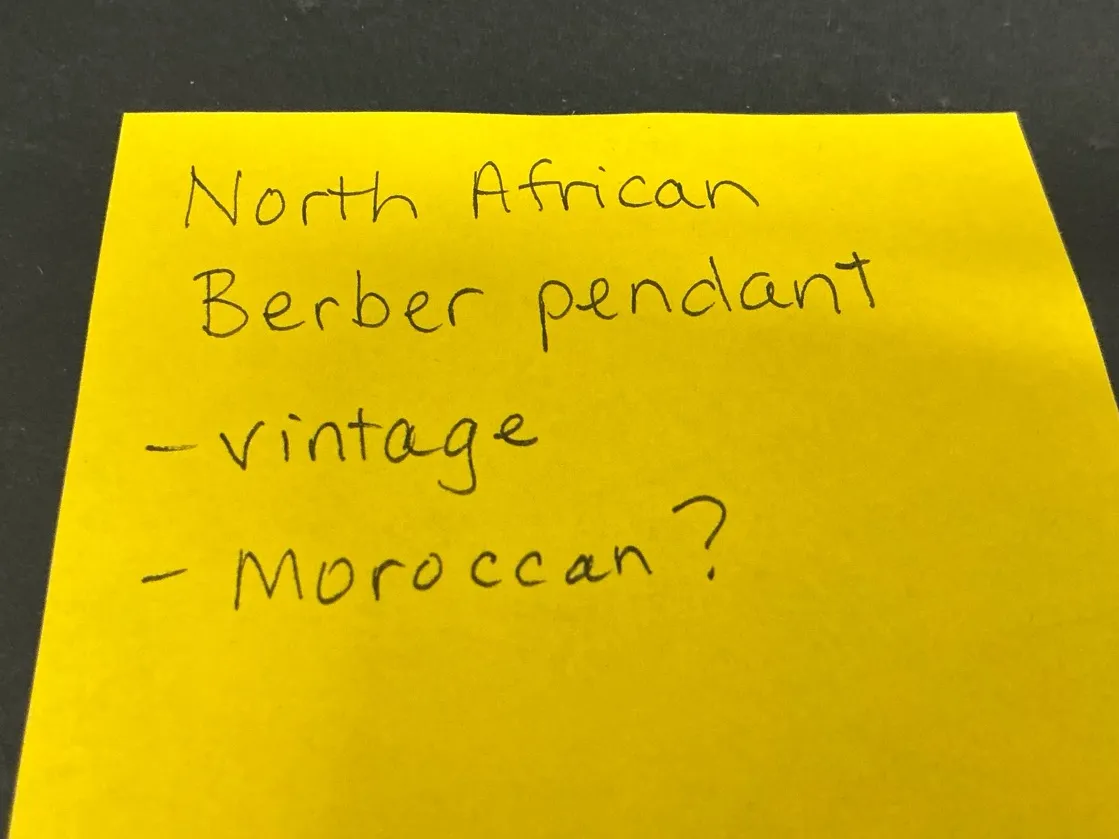 North African
Berber pendant
- vintage
- Moroccan?